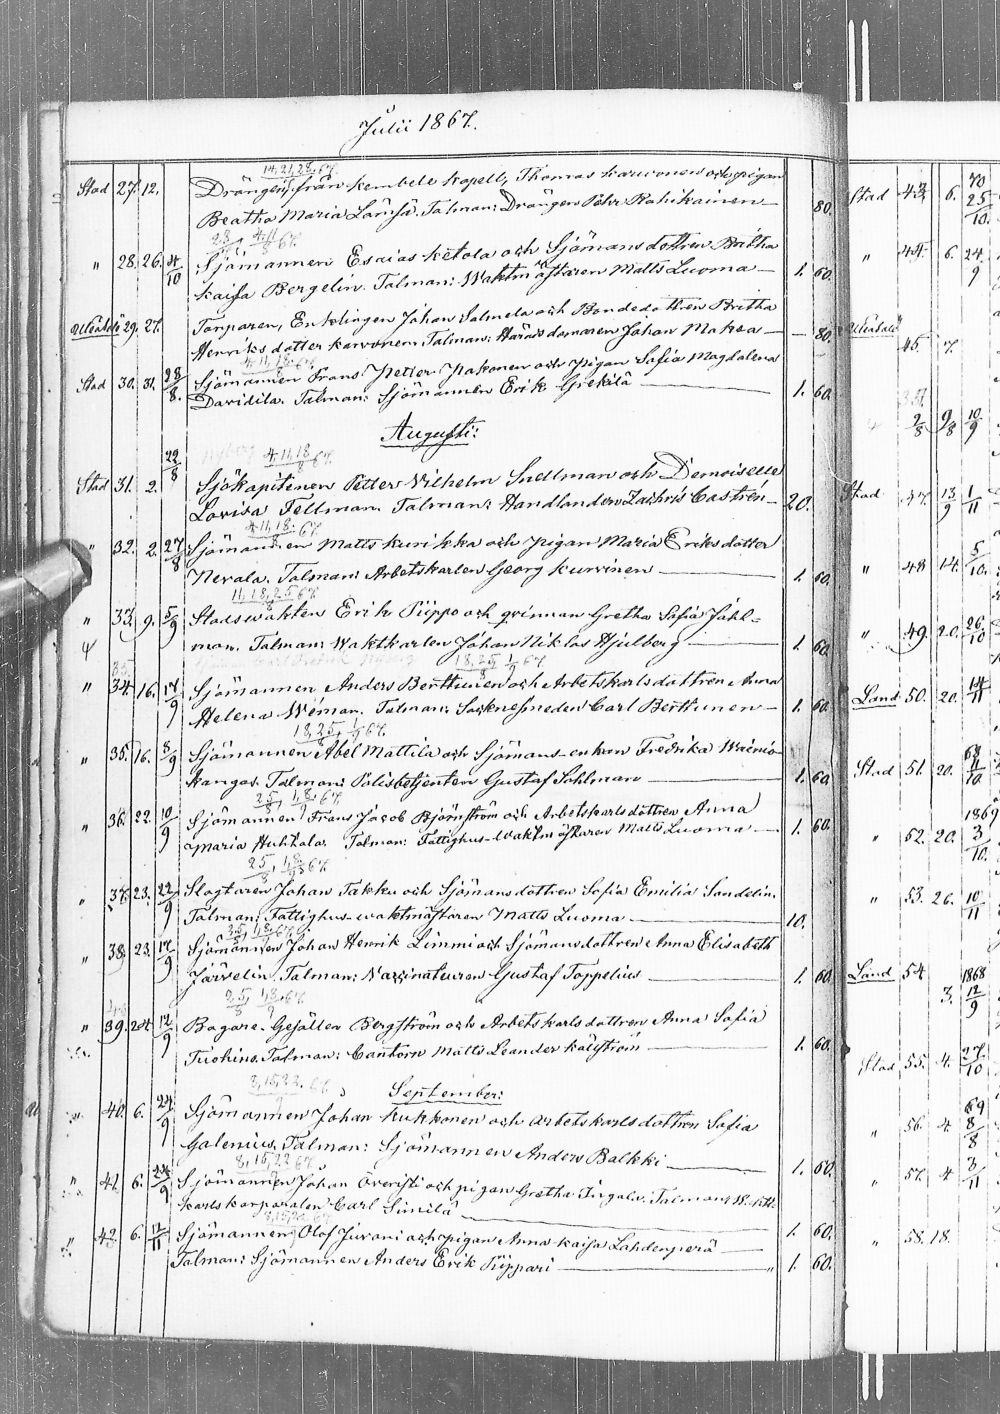 Julii 1867.
14, 21, 28, 67.
Stad 27. 12. Drängen, från Kembele Kapell, Thomas Karvonen och pigan
Beatha Maria Lämsä. Talman: Drängen Pehr Rahikainen — 80.
4. 11 67.
" 28. 26. 4/10 Sjömannen Esaias Ketola och Sjömansdottren Britha
Kaisa Bergelin. Talman: Waktmästaren Matts Luoma — 1. 60.
Uleåsalo 29. 27. Torparen, Enklingen Johan Salmela och Bondedottren Britha
Henriksdotter Karvonen. Talman: Häradsdomaren Johan Makea — 80.
4, 11, 18. 67.
Stad 30. 31. 28/8. Sjömannen Frans Petter Pakonen och pigan Sofia Magdalena
Davidila. Talman: Sjömannen Erik Grekilä — 1. 60.
Augusti:
4, 11, 18/8 67.
Stad 31. 2. 22/8 Sjökapitenen Petter Wilhelm Snellman och Demoiselle
Lovisa Fellman. Talman: Handlanden Zachris Castrén — 20.
4, 11, 18. 67.
" 32. 2. 27/8 Sjömannen Matts Kurikka och pigan Maria Eriksdotter
Nevala. Talman: Arbetskarlen Georg Kurvinen — 1. 60.
11, 18, 25 67.
" 33. 9. 5/9 Stadswakten Erik Piippo och qvinnan Gretha Sofia Jähl-
man. Talman: Waktkarlen Johan Niklas Hjulberg — 1. 60.
18, 25/8 1/9 67.
" 34. 16. 17/9 Sjömannen Anders Berttunen och Arbetskarlsdottren Anna
Helena Wiman. Talman: Sockneschmeden Carl Berttunen — 1. 60.
18, 25, 1/9 67.
" 35. 16. 8/9 Sjömannen Abel Mattila och Sjömans-enkan Fredrika Wainio-
kangas. Talman: Polisbetjenten Gustaf Sohlman — 1. 60.
25/8, 1, 8/9 67.
" 36. 22. 10/9 Sjömannen Frans Jacob Björnström och Arbetskarlsdottren Anna
Maria Huhtala. Talman: Fattighus-waktmästaren Matts Luoma — 1. 60.
25/8, 1, 8/9 67.
" 37. 23. 22/9 Slagtaren Johan Takku och Sjömansdottren Sofia Emilia Sandelin.
Talman: Fattighus-waktmästaren Matts Luoma — 10.
25, 1, 8. 67.
" 38. 23. 17/9 Sjömannen Johan Henrik Limmi och Sjömansdottren Anna Elisabeth
Järvelin. Talman: Vaccinateuren Gustaf Toppelius — 1. 60.
25/8, 1, 8/9 67.
" 39. 24. 12/9 Bagare-Gesällen Bergström och Arbetskarlsdottren Anna Sofia
Tuohino. Talman: Cantorn Matts Leander Källström — 1. 60.
8, 15, 22. 67.
September:
" 40. 6. 24/9 Sjömannen Johan Kukkonen och Arbetskarlsdottren Sofia
Galenius. Talman: Sjömannen Anders Balkki — 1. 60.
8, 15, 22 67.
" 41. 6. 24/9 Sjömannen Johan Överisti och pigan Gretha Ingalv. Talman:
karlskorporalen Carl Similä — 1. 60.
" 42. 6. 12/11 Sjömannen Olof Juvani och pigan Anna Kaisa Lahdenperä —
Talman: Sjömannen Anders Erik Piippari — " 1. 60.
Stad 43. 6. 70 25/10.
" 44. 6. 24/9
Uleåsalo 45. 7.
2/8 9/8 10/9
Stad 47. 13/9 1/11
" 48 14. 5/10.
" 49. 20. 26/10
Land 50. 20. 14/11
Stad 51. 20. 68 11/10
" 52. 20. 1869 3/10.
" 53. 26. 10/11
Land 54 3. 1868 12/9
Stad 55. 4. 27/10
" 56. 4. 69 8/8
" 57. 4 3/11
" 58. 18.